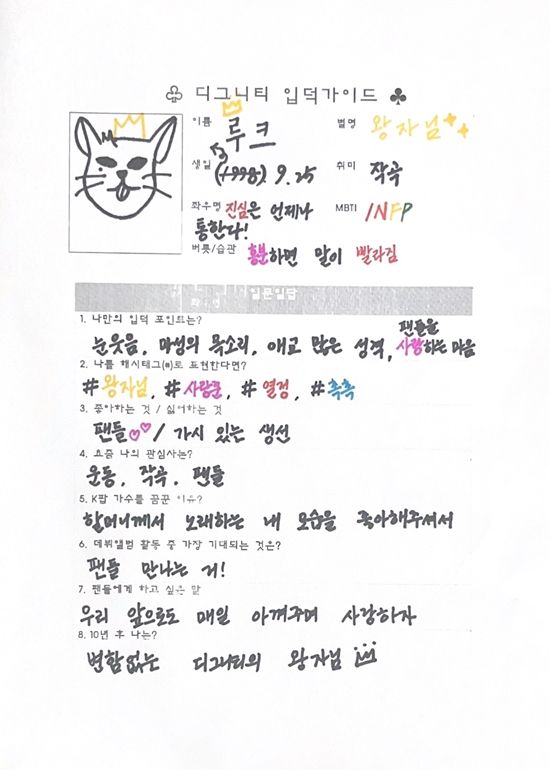 ♧ 디그니티 입덕가이드 ♣
이름 루크 별명 왕자님
생일 (1998). 9. 25 취미 작곡
좌우명 진심은 언제나 통한다! MBTI INFP
버릇/습관 흥분하면 말이 빨라짐
일문일답
1. 나만의 입덕 포인트는?
눈웃음, 마성의 목소리, 애교 많은 성격, 팬들을 사랑하는 마음
2. 나를 해시태그(#)로 표현한다면?
#왕자님, #사랑꾼, #열정, #촉촉
3. 좋아하는 것 / 싫어하는 것
팬들♡♡ / 가시 있는 생선
4. 요즘 나의 관심사는?
운동, 작곡, 팬들
5. K팝 가수를 꿈꾼 이유?
할머니께서 노래하는 내 모습을 좋아해주셔서
6. 데뷔앨범 활동 중 가장 기대되는 것은?
팬들 만나는 거!
7. 팬들에게 하고 싶은 말
우리 앞으로도 매일 아껴주며 사랑하자
8. 10년 후 나는?
변함없는 디그니티의 왕자님